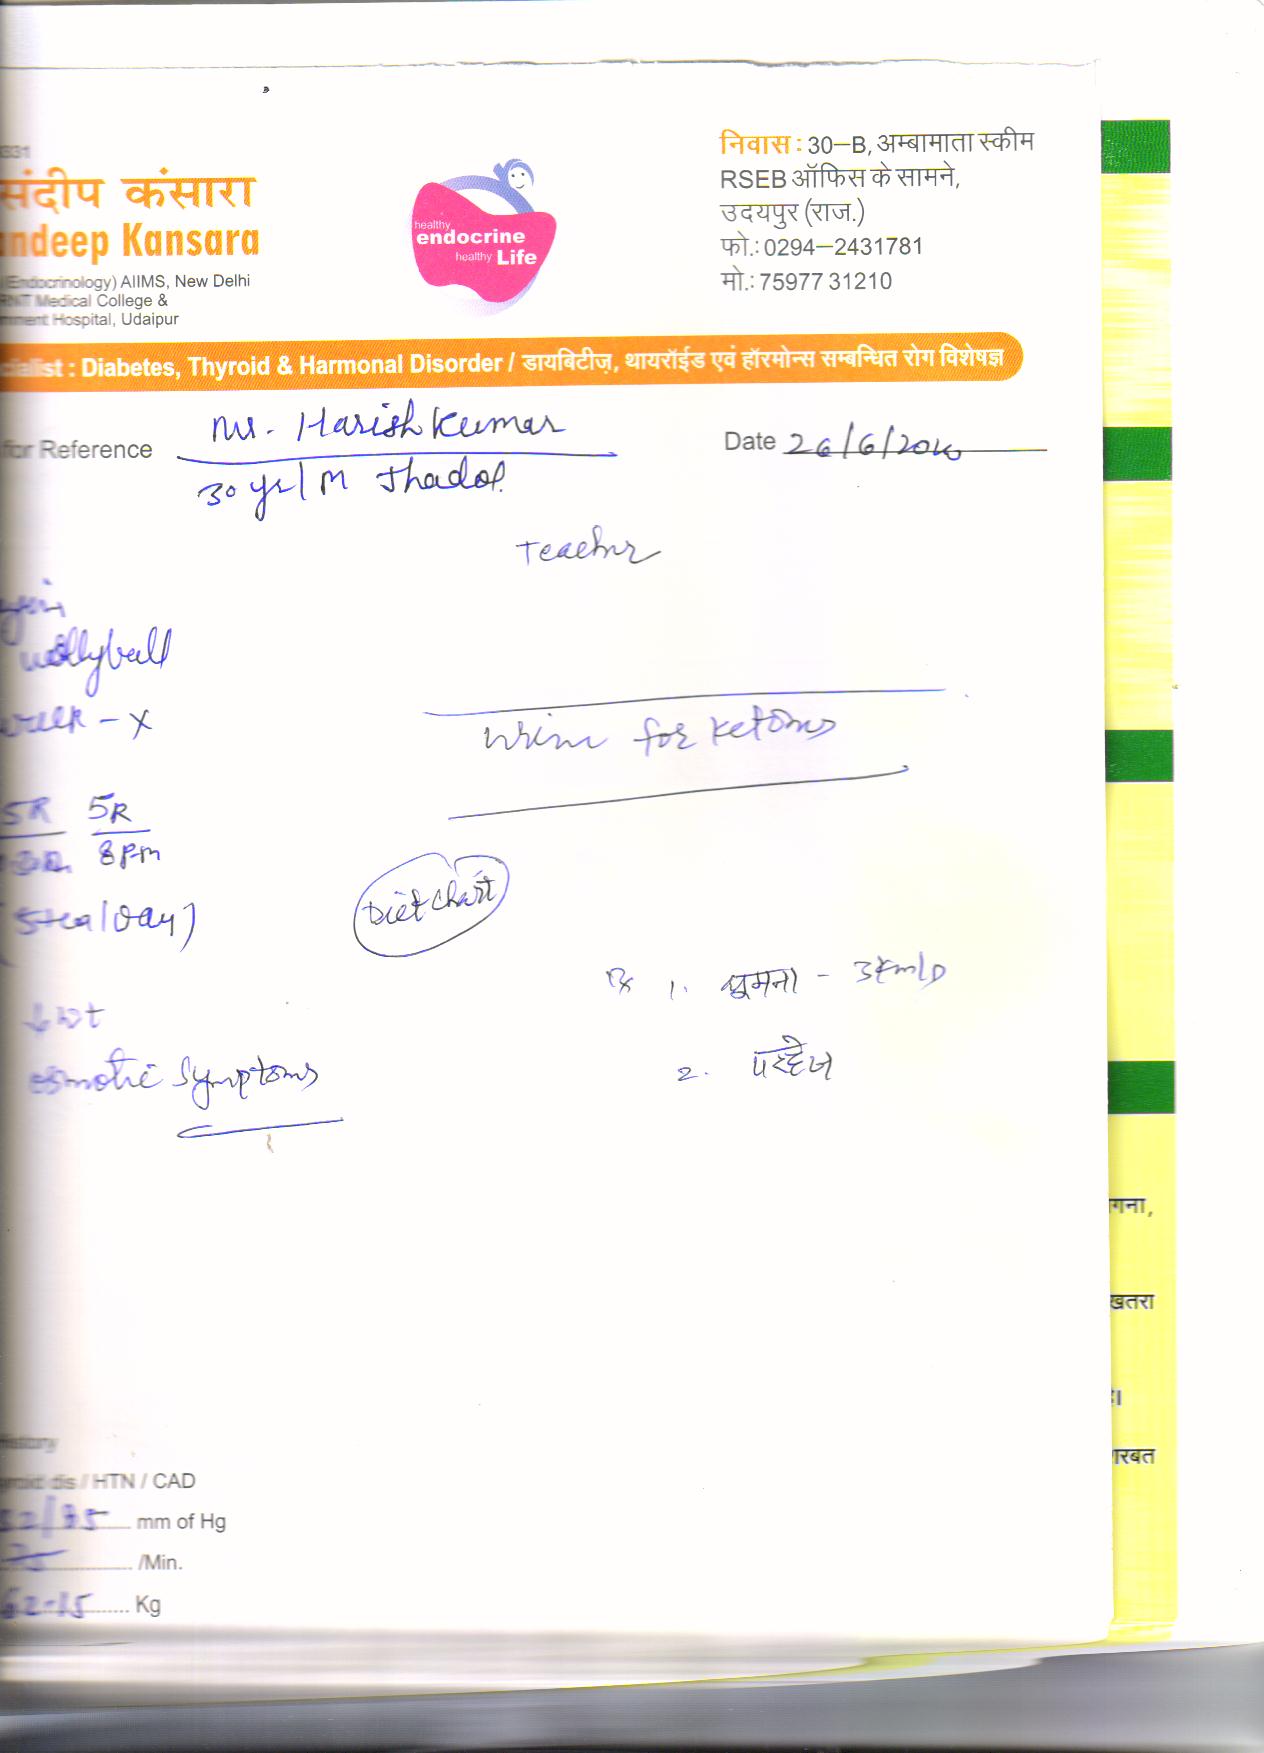 331
संदीप कंसारा
ndeep Kansara
(Endocrinology) AIIMS, New Delhi
RNT Medical College &
nment Hospital, Udaipur
healthy
endocrine
healthy Life
निवास : 30–B, अम्बामाता स्कीम
RSEB ऑफिस के सामने,
उदयपुर (राज.)
फो.: 0294–2431781
मो.: 75977 31210
cialist : Diabetes, Thyroid & Harmonal Disorder / डायबिटीज़, थायरॉईड एवं हॉरमोन्स सम्बन्धित रोग विशेषज्ञ
for Reference Mr. Harish Kumar
Date 26/6/2010
30 yr/M Jhadol
Teacher
vollyball
walk – X
Urine for Ketones
5R 5R
8pm
5tea/day)
Diet Chart
Rx 1. घूमना – 3km/D
↓ wt
osmotic symptoms
2. परहेज
गना,
खतरा
है।
शरबत
History
yroid dis / HTN / CAD
mm of Hg
75 /Min.
62.15 Kg